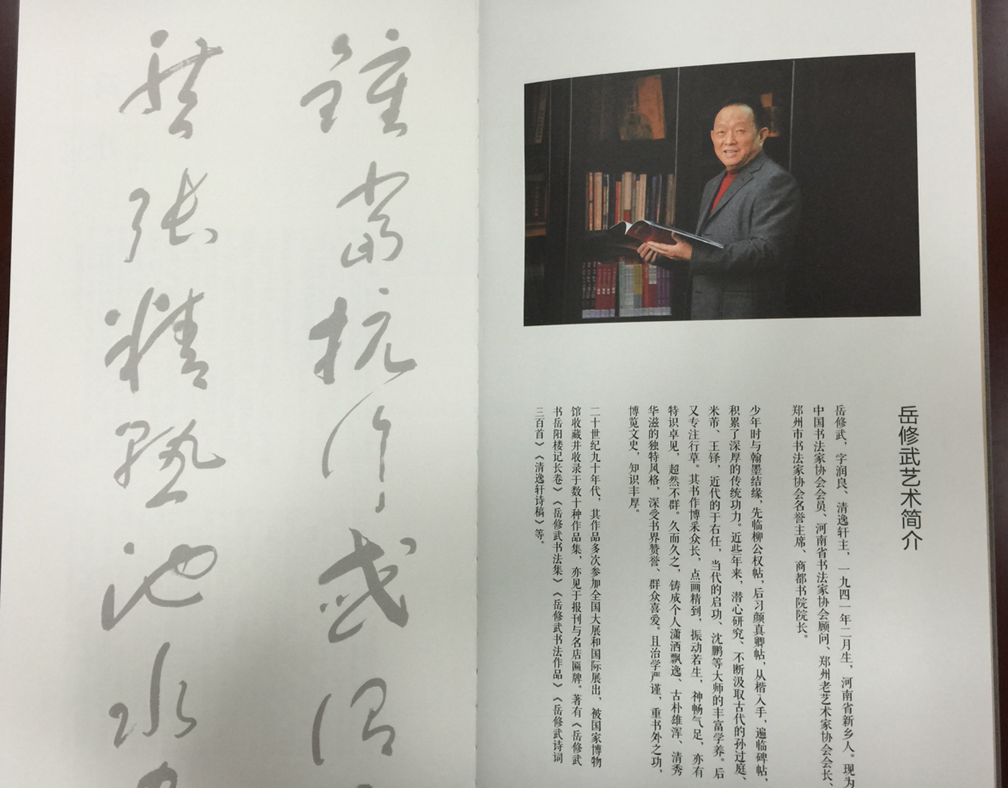 岳修武艺术简介
岳修武，字润良、清逸轩主，一九四一年二月生，河南省新乡人、现为
中国书法家协会会员、河南省书法家协会顾问、郑州老艺术家协会会长、
郑州市书法家协会名誉主席、商都书院院长。
少年时与翰墨结缘，先临柳公权帖，后习颜真卿帖，从楷入手，遍临碑帖，
积累了深厚的传统功力。近些年来，潜心研究、不断汲取古代的孙过庭、
米芾、王铎，近代的于右任，当代的启功、沈鹏等大师的丰富学养。后
又专注行草。其书作博采众长，点画精到，振动若生，神畅气足，亦有
特识卓见，超然不群。久而久之，铸成个人潇洒飘逸、古朴雄浑、清秀
华滋的独特风格，深受书界赞誉、群众喜爱。且治学严谨，重书外之功，
博览文史，知识丰厚。
二十世纪九十年代，其作品多次参加全国大展和国际展出，被国家博物
馆收藏并收录于数十种作品集，亦见于报刊与名店匾牌。著有《岳修武
书岳阳楼记长卷》《岳修武书法集》《岳修武书法作品》《岳修武诗词
三百首》《清逸轩诗稿》等。
鍾當抗行或謂
然張精熟池水